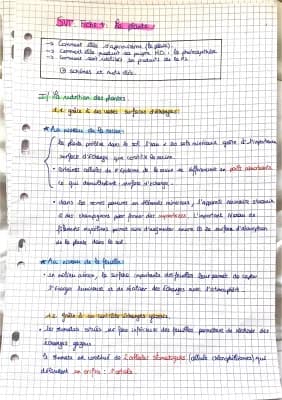 SVT Fiche 1 : La plante
→ Comment elle s'approvisionne (la plante).
→ Comment elle produit sa propre MO : la photosynthèse
→ Comment sont utilisés les produits de la
⊕ schémas et mots clés.
I/ La nutrition des plantes
1.1 grâce à ses vastes surfaces d'échanges
★ Au niveau de la racine
la plante prélève dans le sol l'eau et les sels minéraux grâce à l'importante
surface d'échange que constitue la racine.
• certaines cellules de l'épiderme de la racine se différencient en poils absorbants
ce qui démultiplie la surface d'échange.
• dans les zones pauvres en éléments minéraux, l'appareil racinaire s'associe
à des champignons pour former des mycorhizes. L'important réseau de
filaments mycéliens permet ainsi d'augmenter encore la surface d'absorption
de la plante dans le sol.
★ Au niveau de la feuille
• en milieu aérien, la surface importante des feuilles leur permet de capter
l'énergie lumineuse et de réaliser des échanges avec l'atmosphère
1.2 grâce à ses échanges gazeux.
• les stomates situés sur face inférieure des feuilles permettent de réaliser des
échanges gazeux
le stomate est constitué de 2 cellules stomatiques (cellules chlorophylliennes) qui
délimitent un orifice : l'ostiole